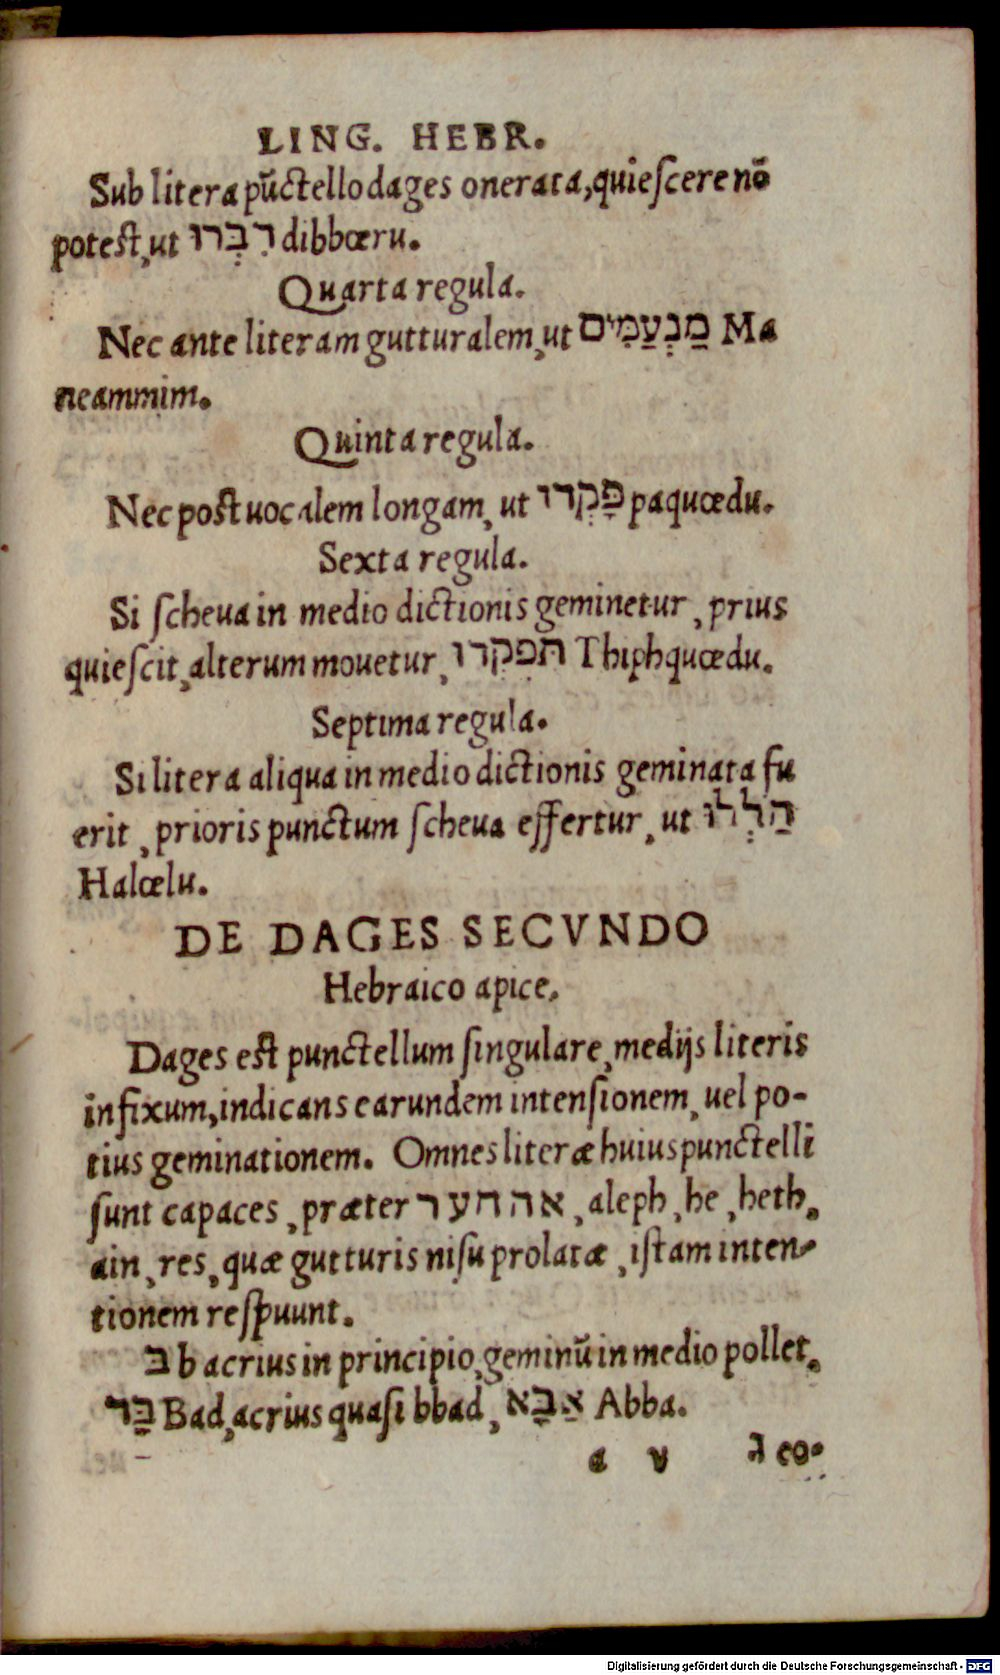 LING. HEBR.
Sub litera pũctello dages onerata, quiescere nõ
potest, ut דִּבְּרוּ dibbœru.
Quarta regula.
Nec ante literam gutturalem, ut מַנְעַמִּים Ma
neammim.
Quinta regula.
Nec post uocalem longam, ut פָּקְדוּ paquœdu.
Sexta regula.
Si scheua in medio dictionis geminetur, prius
quiescit, alterum mouetur, תִפְקְדוּ Thiphquœdu.
Septima regula.
Si litera aliqua in medio dictionis geminata fu
erit, prioris punctum scheua effertur, ut הַלְלוּ
Halœlu.
DE DAGES SECVNDO
Hebraico apice.
Dages est punctellum singulare, medijs literis
infixum, indicans earundem intensionem, uel po-
tius geminationem. Omnes literæ huius punctelli
sunt capaces, præter אההער, aleph, he, heth,
ain, res, quæ gutturis nisu prolatæ, istam inten-
tionem respuunt.
בּ b acrius in principio, geminũ in medio pollet,
בַּד Bad, acrius quasi bbad, אַבָּא Abba.
a v ג co.
Digitalisierung gefördert durch die Deutsche Forschungsgemeinschaft - DFG